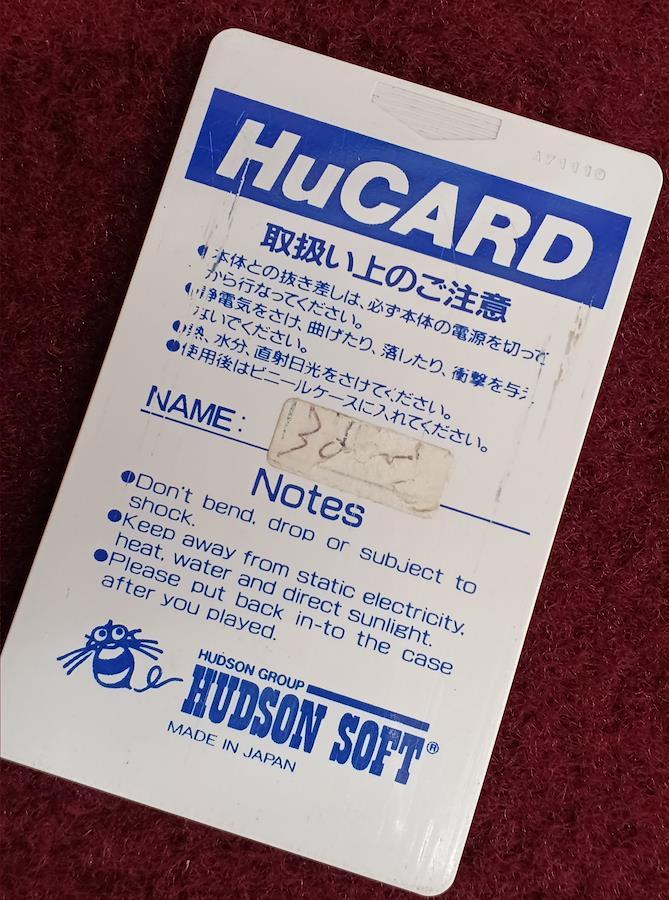 A71110
HuCARD
取扱い上のご注意
●本体との抜き差しは、必ず本体の電源を切って
から行なってください。
●静電気をさけ、曲げたり、落したり、衝撃を与え
ないでください。
●熱、水分、直射日光をさけてください。
●使用後はビニールケースに入れてください。
NAME:
Notes
●Don't bend, drop or subject to
shock.
●Keep away from static electricity,
heat, water and direct sunlight.
●Please put back in-to the case
after you played.
HUDSON GROUP
HUDSON SOFT®
MADE IN JAPAN